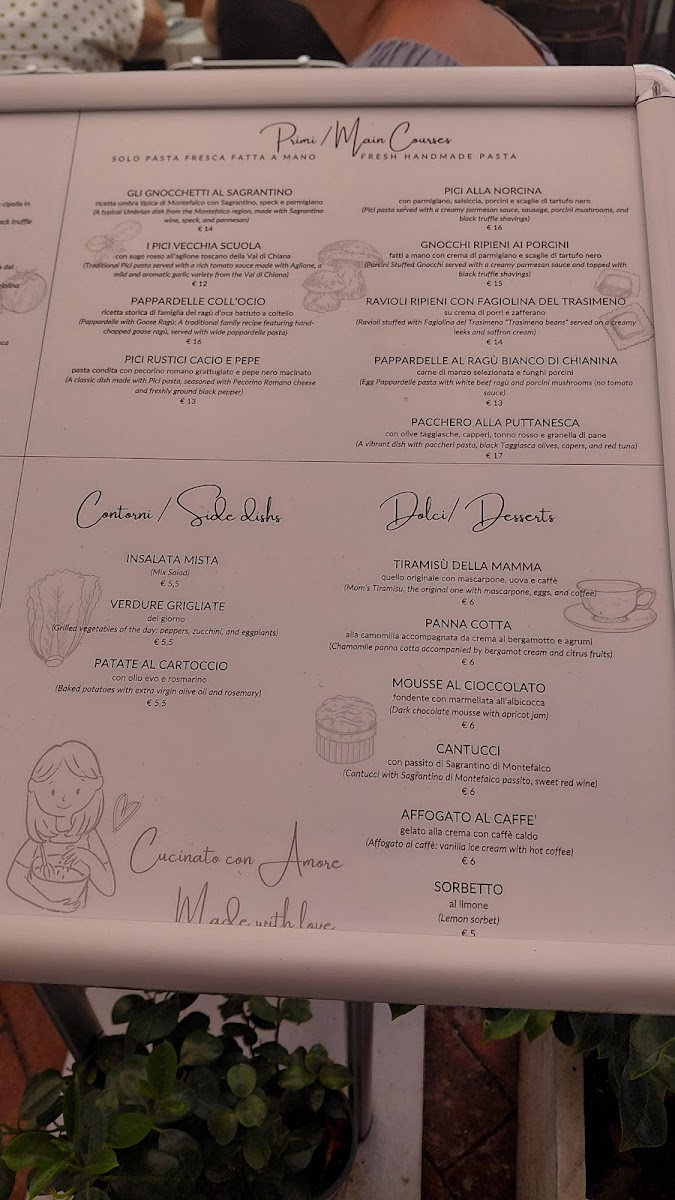 cipolla in
black truffle
Primi / Main Courses
SOLO PASTA FRESCA FATTA A MANO FRESH HANDMADE PASTA
GLI GNOCCHETTI AL SAGRANTINO
ricetta umbra tipica di Montefalco con Sagrantino, speck e parmigiano
(A typical Umbrian dish from the Montefalco region, made with Sagrantino
wine, speck, and parmesan)
€ 14
I PICI VECCHIA SCUOLA
con sugo rosso all'aglione toscano della Val di Chiana
(Traditional Pici pasta served with a rich tomato sauce made with Aglione, a
mild and aromatic garlic variety from the Val di Chiana)
€ 12
PAPPARDELLE COLL'OCIO
ricetta storica di famiglia del ragù d'oca battuto a coltello
(Pappardelle with Goose Ragù: A traditional family recipe featuring hand-
chopped goose ragù, served with wide pappardelle pasta)
€ 16
PICI RUSTICI CACIO E PEPE
pasta condita con pecorino romano grattugiato e pepe nero macinato
(A classic dish made with Pici pasta, seasoned with Pecorino Romano cheese
and freshly ground black pepper)
€ 13
PICI ALLA NORCINA
con parmigiano, salsiccia, porcini e scaglie di tartufo nero
(Pici pasta served with a creamy parmesan sauce, sausage, porcini mushrooms, and
black truffle shavings)
€ 16
GNOCCHI RIPIENI AI PORCINI
fatti a mano con crema di parmigiano e scaglie di tartufo nero
(Porcini Stuffed Gnocchi served with a creamy parmesan sauce and topped with
black truffle shavings)
€ 15
RAVIOLI RIPIENI CON FAGIOLINA DEL TRASIMENO
su crema di porri e zafferano
(Ravioli stuffed with Fagiolina del Trasimeno "Trasimeno beans" served on a creamy
leeks and saffron cream)
€ 14
PAPPARDELLE AL RAGÙ BIANCO DI CHIANINA
carne di manzo selezionata e funghi porcini
(Egg Pappardelle pasta with white beef ragù and porcini mushrooms (no tomato
sauce)
€ 13
PACCHERO ALLA PUTTANESCA
con olive taggiasche, capperi, tonno rosso e granella di pane
(A vibrant dish with paccheri pasta, black Taggiasca olives, capers, and red tuna)
€ 17
Contorni / Side dishs
INSALATA MISTA
(Mix Salad)
€ 5,5
VERDURE GRIGLIATE
del giorno
(Grilled vegetables of the day: peppers, zucchini, and eggplants)
€ 5,5
PATATE AL CARTOCCIO
con olio evo e rosmarino
(Baked potatoes with extra virgin olive oil and rosemary)
€ 5,5
Dolci/ Desserts
TIRAMISÙ DELLA MAMMA
quello originale con mascarpone, uova e caffè
(Mom's Tiramisu, the original one with mascarpone, eggs, and coffee)
€ 6
PANNA COTTA
alla camomilla accompagnata da crema al bergamotto e agrumi
(Chamomile panna cotta accompanied by bergamot cream and citrus fruits)
€ 6
MOUSSE AL CIOCCOLATO
fondente con marmellata all'albicocca
(Dark chocolate mousse with apricot jam)
€ 6
CANTUCCI
con passito di Sagrantino di Montefalco
(Cantucci with Sagrantino di Montefalco passito, sweet red wine)
€ 6
AFFOGATO AL CAFFE'
gelato alla crema con caffè caldo
(Affogato al caffè: vanilla ice cream with hot coffee)
€ 6
SORBETTO
al limone
(Lemon sorbet)
€ 5
Cucinato con Amore
Made with love